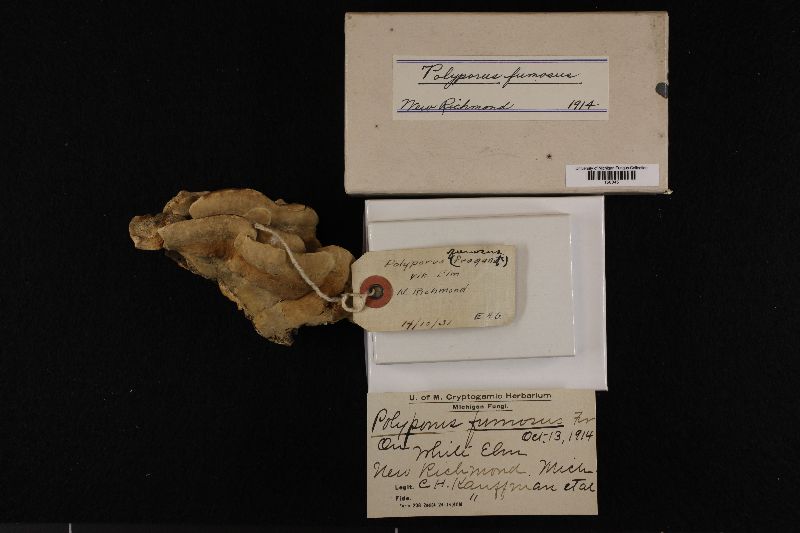 Polyporus fumosus
New Richmond 1914
University of Michigan Fungus Collection
fumosus
Polyporus (Fragans)
Elm
N. Richmond
14/10/31
U. of M. Cryptogamic Herbarium
Michigan Fungi.
Polyporus fumosus Fr
Oct. 13, 1914
On White Elm
New Richmond, Mich.
Legit. C. H. Kauffman et al
Fide. " "